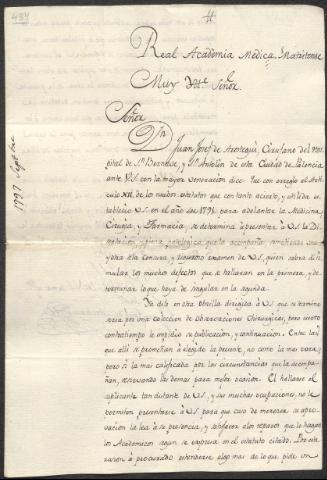 484
#
Real Academia Medica Matritense
Muy Yltre Señor.
Señor
Dn Juan Josef de Arostegui, Cirujano del Hospital
de Sn Bernave, y Sn Antolin de esta Ciudad de Palencia
ante V.S. con la mayor veneracion dice: Que con arreglo al Articulo
XII. de los nuevos estatutos que con tanto acierto, y utilidad establecio
V.S. en el año de 1791, para adelantar la Medicina,
Cirugia, y Farmacia, se determina à presentar à V.S. la Disertacion
que le acompaña, sometiendo una
y otra à la censura, y riguroso examen de V.S., quien sabra disimular
los muchos defectos que se hallaran en la primera, y
lo que haya de singular en la segunda.
Ya dije en otra obrilla dirigida à V.S. que
seria por una coleccion de Observaciones Chirurgicas, pero cierto
contratiempo le impidio su publicacion, y continuacion. Entre las
que alli se prometian à elegido la presente, no como la mas rara,
pero si la mas calificada por las circunstancias que la acompañan,
reservando las demas para mejor ocasion. El hallarse el
suplicante tan distante de V.S., y sus muchas ocupaciones, no le
permiten presentarse à V.S. para que caso de merecer su aprobacion
la lea à su presencia, y satisfacer los reparos que le hagan
los Academicos segun se expresa en el estatuto citado. Por esta
razon à procurado extenderse algo mas de lo que pide un
1797